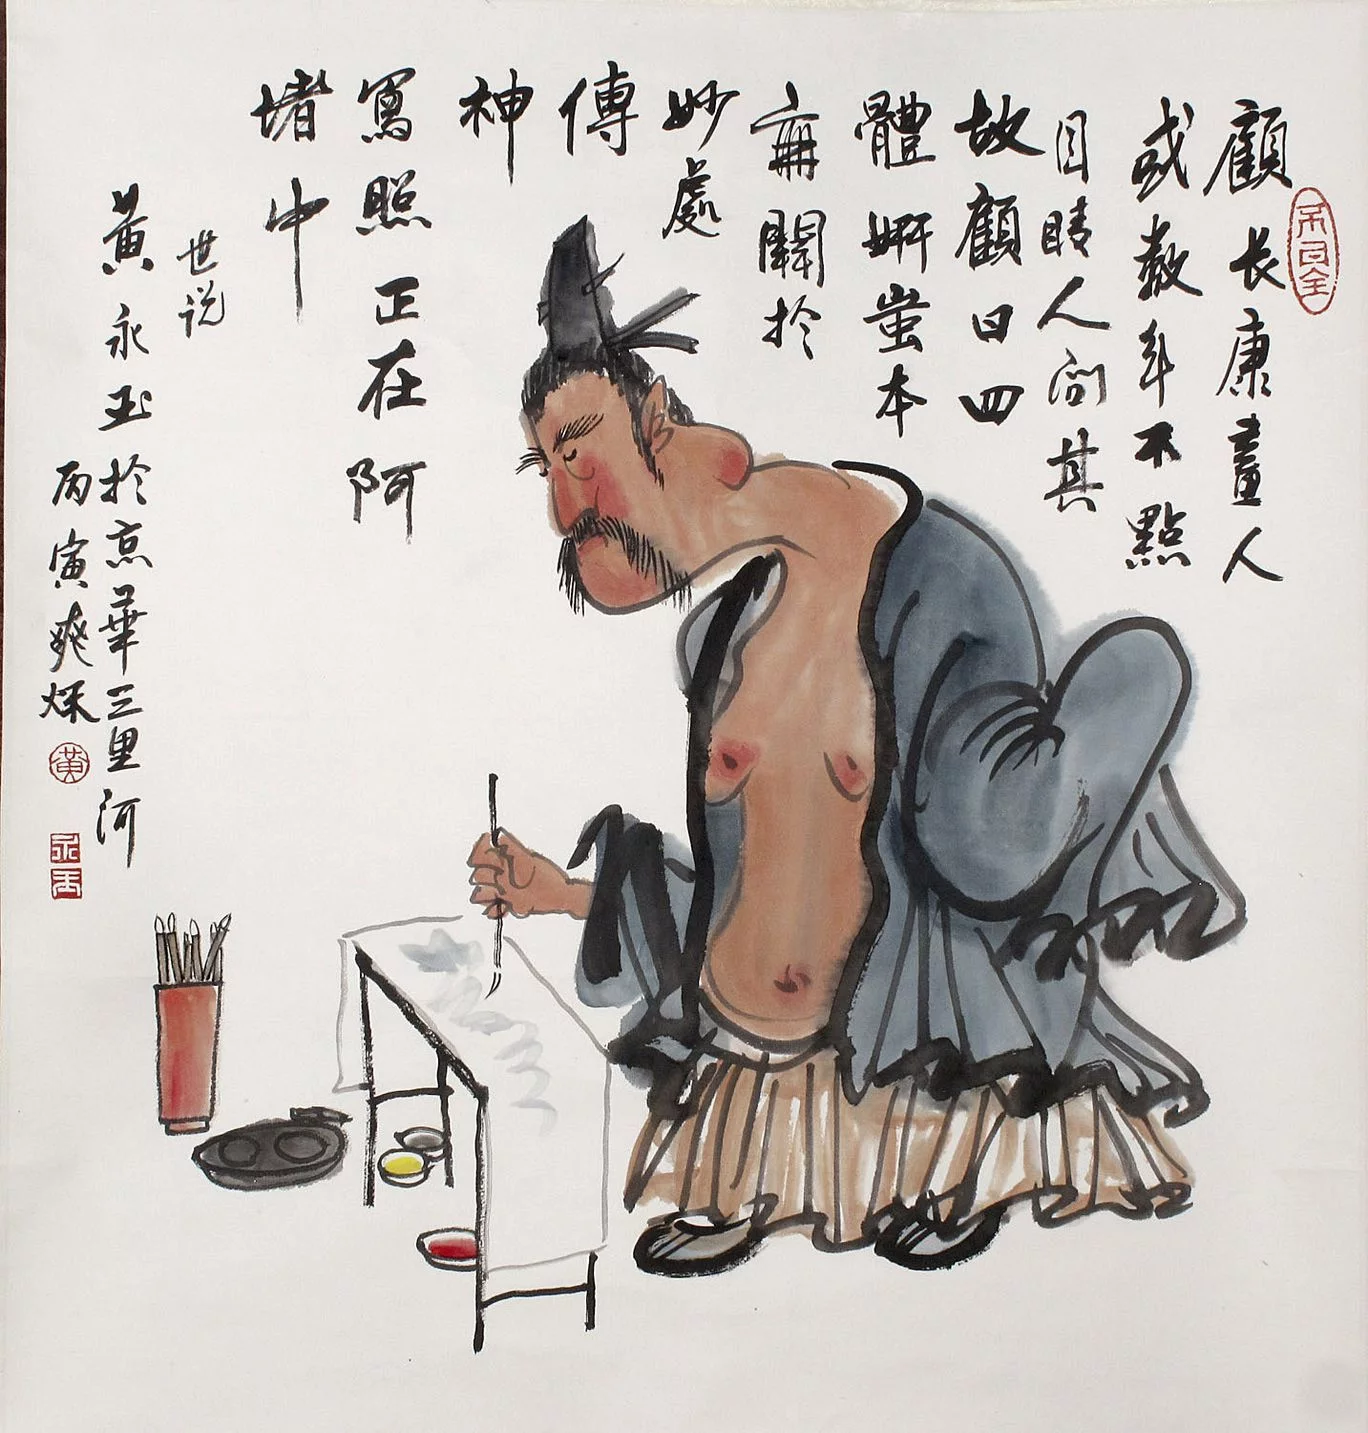 顧长康畫人
或數年不點
目睛人问其
故顧曰四
體妍蚩本
無關於
妙處
傳
神
寫照正在阿
堵中
世说
黄永玉於京華三里河
丙寅爽秋
黄
永玉